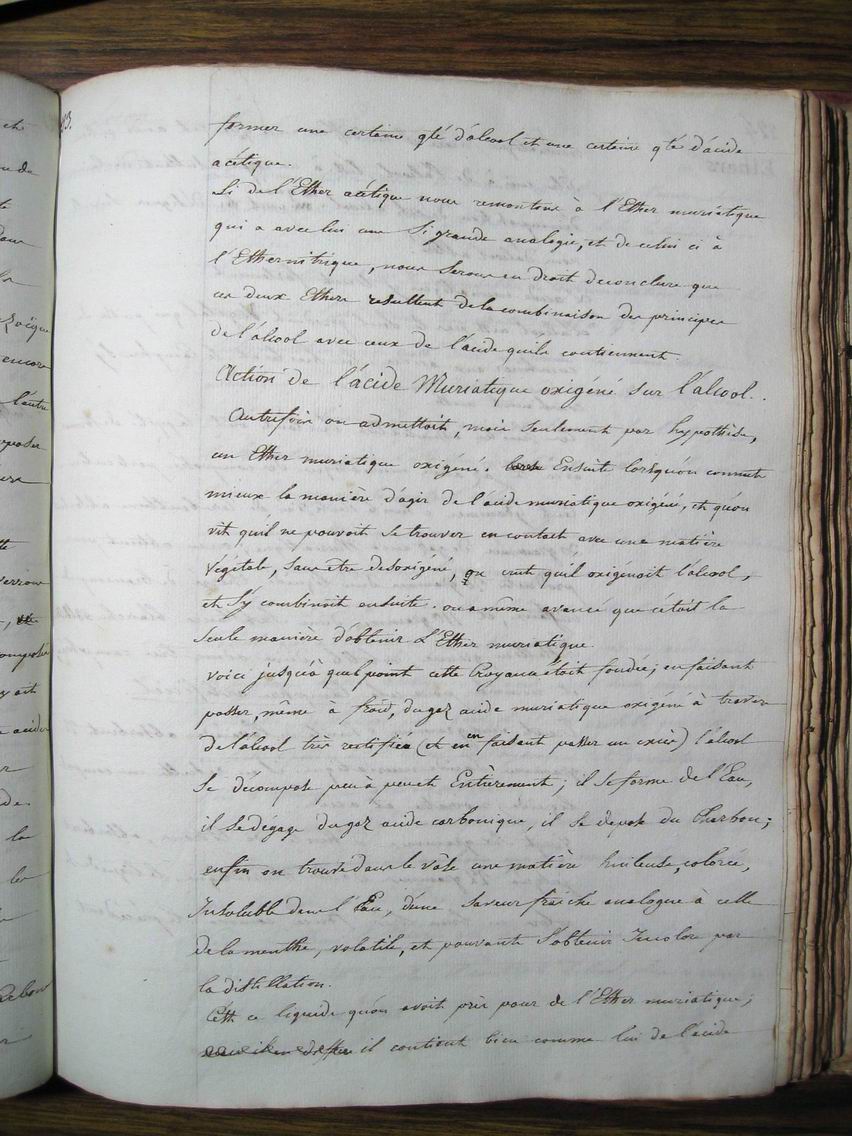 former une certaine qté d'alcool et une certaine qté d'acide
acétique.
Si de l'Ether acétique nous remontons à l'Ether muriatique
qui a avec lui une Si grande analogie, et de celui ci à
l'Ether nitrique, nous Serons en droit de conclure que
ces deux Ethers resultent de la combinaison des principes
de l'alcool avec ceux de l'acide quils contiennent
Action de l'ácide Muriatique oxigéné sur l'alcool.
Autrefois on admettoit, mais Seulement par hypothèse,
un Ether muriatique oxigéné. Ensuite lorsqu'on connut
mieux la manière d'agir de l'acide muriatique oxigéné, et qu'on
vit qu'il ne pouvoit se trouver en contact avec une matière
végétale, sans etre desoxigéné, on crut qu'il oxigénoit l'alcool,
et S'y combinoit ensuite. on a même avancé que c'étoit la
Seule manière d'obtenir L'Ether muriatique.
Voici jusqu'à quel point cette Croyance étoit fondée; en faisant
passer, même à froid, du gaz acide muriatique oxigéné à travers
de l'alcool très rectifié (et en en faisant passer un excès) l'alcool
Se décompose peu à peu et Entièrement; il se forme de l'Eau,
il Se dégage du gaz acide carbonique, il se depose du Charbon;
enfin on trouve dans le vâse une matière huileuse, colorée,
Insoluble dans l'Eau, d'une Saveur fraîche analogue à celle
de la menthe, volatile, et pouvant S'obtenir Incolore par
la distillation.
C'est ce liquide qu'on avoit pris pour de l'Ether muriatique;
il contient bien comme lui de l'acide